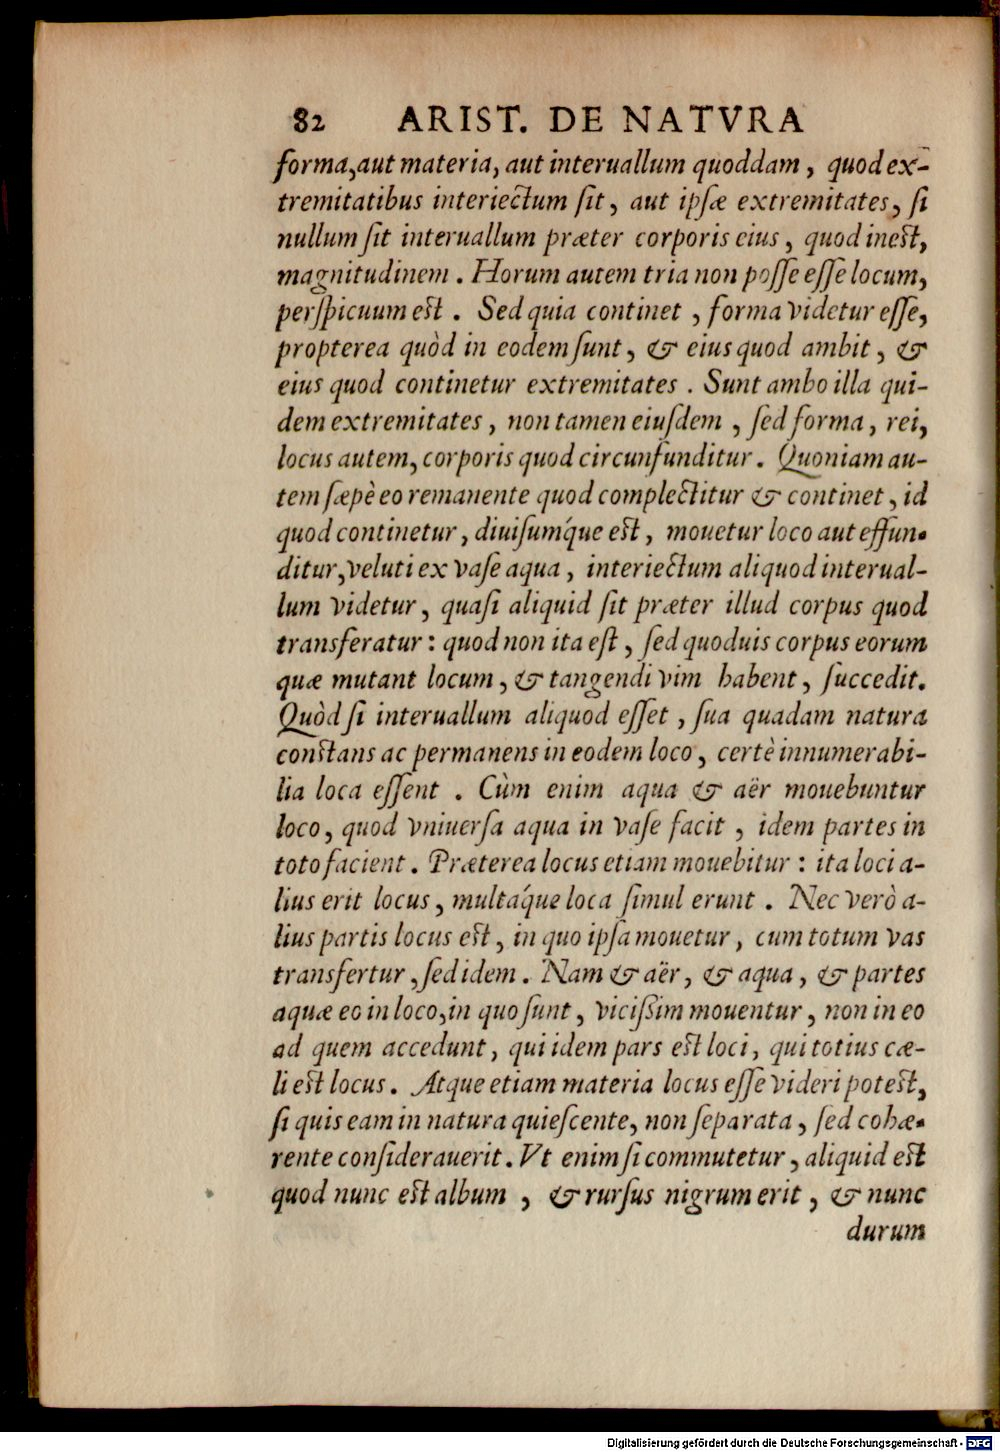 82 ARIST. DE NATVRA
forma, aut materia, aut interuallum quoddam, quod ex-
tremitatibus interiectum ſit, aut ipſæ extremitates, ſi
nullum ſit interuallum præter corporis eius, quod ineſt,
magnitudinem. Horum autem tria non poſſe eſſe locum,
perſpicuum eſt. Sed quia continet, forma videtur eſſe,
propterea quòd in eodem ſunt, & eius quod ambit, &
eius quod continetur extremitates. Sunt ambo illa qui-
dem extremitates, non tamen eiuſdem, ſed forma, rei,
locus autem, corporis quod circunfunditur. Quoniam au-
tem ſæpè eo remanente quod complectitur & continet, id
quod continetur, diuiſumq́ue eſt, mouetur loco aut effun-
ditur, veluti ex vaſe aqua, interiectum aliquod interual-
lum videtur, quaſi aliquid ſit præter illud corpus quod
transferatur: quod non ita eſt, ſed quoduis corpus eorum
quæ mutant locum, & tangendi vim habent, ſuccedit.
Quòd ſi interuallum aliquod eſſet, ſua quadam natura
conſtans ac permanens in eodem loco, certè innumerabi-
lia loca eſſent. Cùm enim aqua & aër mouebuntur
loco, quod vniuerſa aqua in vaſe facit, idem partes in
toto facient. Præterea locus etiam mouebitur: ita loci a-
lius erit locus, multaq́ue loca ſimul erunt. Nec verò a-
lius partis locus eſt, in quo ipſa mouetur, cum totum vas
transfertur, ſed idem. Nam & aër, & aqua, & partes
aquæ eo in loco, in quo ſunt, viciſsim mouentur, non in eo
ad quem accedunt, qui idem pars eſt loci, qui totius cæ-
li eſt locus. Atque etiam materia locus eſſe videri poteſt,
ſi quis eam in natura quieſcente, non ſeparata, ſed cohæ-
rente conſiderauerit. Vt enim ſi commutetur, aliquid eſt
quod nunc eſt album, & rurſus nigrum erit, & nunc
durum
Digitalisierung gefördert durch die Deutsche Forschungsgemeinschaft - DFG